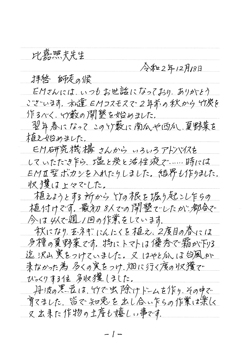 比嘉照夫先生
令和2年12月13日
拝啓 師走の候
EMさんには、いつもお世話になっており、ありがとう
ございます。私達EMコスモスで2年前の秋から竹炭を
作るべく、竹薮の開墾を始めました。
翌年春になって、この竹薮に南瓜や西瓜、夏野菜を
植え始めました。
EM研究機構さんからいろいろアドバイスを
していただきながら、塩と炭と活性液で……時には
EMⅡ型ボカシを入れたりしました。結果も作りました
収穫は上々でした。
植えようとする所から竹の根を掘り起こしながらの
植付けです。最初3人での開墾でしたが、
今は5人で週1回の作業をしています。
秋になり、玉ネギ、にんにくを植え、2度目の春には
多種の夏野菜です。特にトマトは優秀で霜が下りる
迄沢山実をつけていました。又はやとうりは台風が
来なかった為多くの実をつけ、畑に行く度の収穫で
びっくりする位多収穫しました。
丹波の黒豆は、竹で虫除けドームを作り、その中で
育てました。皆で知恵を出し合いながらの作業は楽しく
又出来た作物の土産も嬉しい事です。
-1-